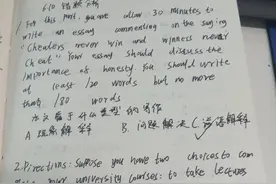 For this part, you are allow 30 minutes to
write an essay commenting on the saying
"Cheaters never win and winners never
cheat" Your essay should discuss the
importance of honesty You should write
at least 120 words but no more
than 180 words
A 现象解释 B. 问题解决 C 谚语解释
2. Directions: Suppose you have two choices to com
your university courses: to take lectures